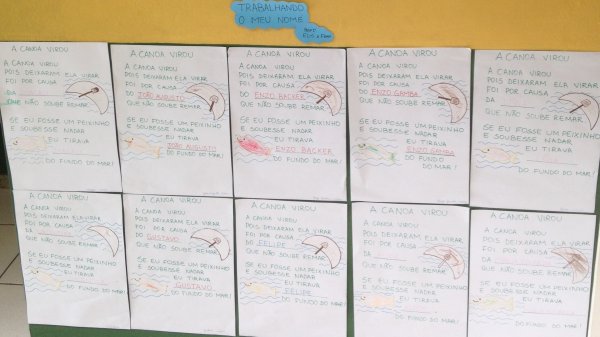 TRABALHANDO
O MEU NOME
A CANOA VIROU
POIS DEIXARAM ELA VIRAR
FOI POR CAUSA
DA
QUE NÃO SOUBE REMAR
SE EU FOSSE UM PEIXINHO
E SOUBESSE NADAR
EU TIRAVA
DO FUNDO DO MAR!
A CANOA VIROU
POIS DEIXARAM ELA VIRAR
FOI POR CAUSA
DO JOÃO AUGUSTO
QUE NÃO SOUBE REMAR.
SE EU FOSSE UM PEIXINHO
E SOUBESSE NADAR
EU TIRAVA
JOÃO AUGUSTO
DO FUNDO DO MAR!
A CANOA VIROU
POIS DEIXARAM ELA VIRAR
FOI POR CAUSA
DO ENZO BACKER
QUE NÃO SOUBE REMAR.
SE EU FOSSE UM PEIXINHO
E SOUBESSE NADAR
EU TIRAVA
ENZO BACKER
DO FUNDO DO MAR!
A CANOA VIROU
POIS DEIXARAM ELA VIRAR
FOI POR CAUSA
DO ENZO GAMBA
QUE NÃO SOUBE REMAR.
SE EU FOSSE UM PEIXINHO
E SOUBESSE NADAR
EU TIRAVA
ENZO GAMBA
DO FUNDO
DO MAR!
A CANOA VIROU
POIS DEIXARAM ELA VIRAR
FOI POR CAUSA
DA
QUE NÃO SOUBE REMAR.
SE EU FOSSE UM PEIXINHO
E SOUBESSE NADAR
EU TIRAVA
DO FUNDO DO MAR!
A CANOA VIROU
POIS DEIXARAM ELA VIRAR
FOI POR CAUSA
DA
QUE NÃO SOUBE REMAR.
SE EU FOSSE UM PEIXINHO
E SOUBESSE NADAR
EU TIRAVA
DO FUNDO DO MAR!
A CANOA VIROU
POIS DEIXARAM ELA VIRAR
FOI POR CAUSA
DO GUSTAVO
QUE NÃO SOUBE REMAR.
SE EU FOSSE UM PEIXINHO
E SOUBESSE NADAR
EU TIRAVA
GUSTAVO
DO FUNDO DO MAR!
A CANOA VIROU
POIS DEIXARAM ELA VIRAR
FOI POR CAUSA
DO FELIPE
QUE NÃO SOUBE REMAR.
SE EU FOSSE UM PEIXINHO
E SOUBESSE NADAR
EU TIRAVA
FELIPE
DO FUNDO DO MAR!
A CANOA VIROU
POIS DEIXARAM ELA VIRAR
FOI POR CAUSA
DA
QUE NÃO SOUBE REMAR.
SE EU FOSSE UM PEIXINHO
E SOUBESSE NADAR
EU TIRAVA
DO FUNDO DO MAR!
A CANOA VIROU
POIS DEIXARAM ELA VIRAR
FOI POR CAUSA
DA
QUE NÃO SOUBE REMAR.
SE EU FOSSE UM PEIXINHO
E SOUBESSE NADAR
EU TIRAVA
DO FUNDO DO MAR!